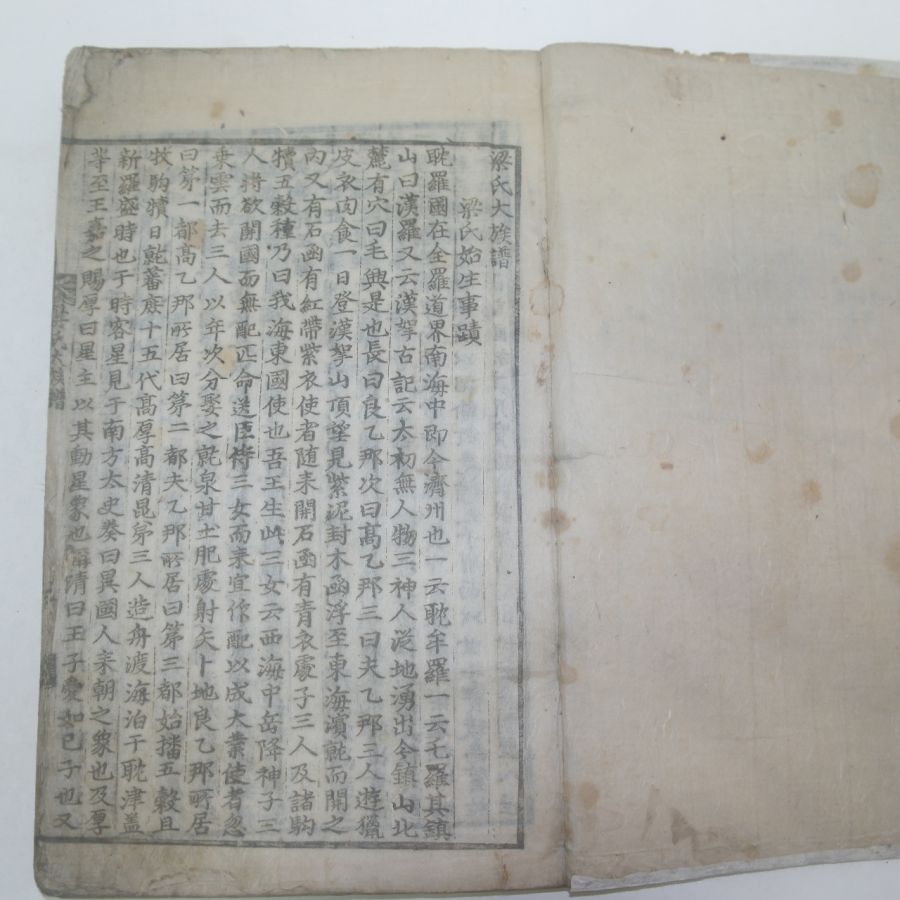 梁氏大族譜
梁氏始生事蹟
耽羅國在全羅道界南海中即今濟州也一云耽牟羅一云乇羅其鎮
山曰漢羅又云漢拏古記云太初無人物三神人從地湧出今鎮山北
麓有穴曰毛興是也長曰良乙那次曰高乙那三曰夫乙那三人遊獵
皮衣肉食一日登漢拏山頂望見紫泥封木函浮至東海濱就而開之
內又有石函有紅帶紫衣使者随来開石函有青衣處子三人及諸駒
犢五穀種乃曰我海東國使也吾王生此三女云西海中岳降神子三
人将欲開國而無配匹命送臣侍三女而来宜作配以成大業使者忽
乗雲而去三人以年次分娶之就泉甘土肥處射矢卜地良乙那所居
曰第一都高乙那所居曰第二都夫乙那所居曰第三都始播五穀且
牧駒犢日就蕃庶十五代高厚高清昆弟三人造舟渡海泊于耽津盖
新羅盛時也于時客星見于南方太史奏曰異國人来朝之象也及厚
等至王嘉之賜厚曰星主以其動星象也清曰王子愛如己子也又
梁氏大族譜